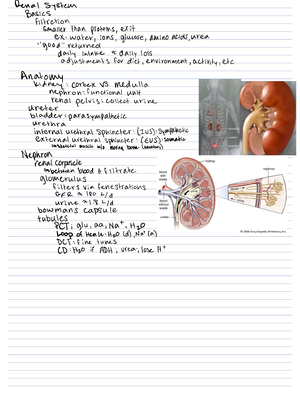 Renal System
Basics
Filtration
smaller than proteins, exit
ex: water, ions, glucose, amino acids, urea
"good" returned
daily intake ≈ daily loss
adjustments for diet, environment, activity, etc
Anatomy
kidney: cortex vs medulla
nephron: functional unit
renal pelvis: collect urine
ureter
bladder: parasympathetic
urethra
internal urethral sphincter: (IUS): Sympathetic
external urethral sphincter: (EUS): Somatic
muscle w/o moving bone
Nephron
renal corpuscle
between blood & filtrate
glomerulus
filters via fenestrations
GFR ≈ 180 L/d
urine ≈ 1.8 L/d
bowmans capsule
tubules
PCT: glu, aa, Na⁺, H₂O
Loop of Henle: H₂O (d), Na⁺ (a)
DCT: fine tunes
CD: H₂O if ADH, urea, lose H⁺
kidney
nephron